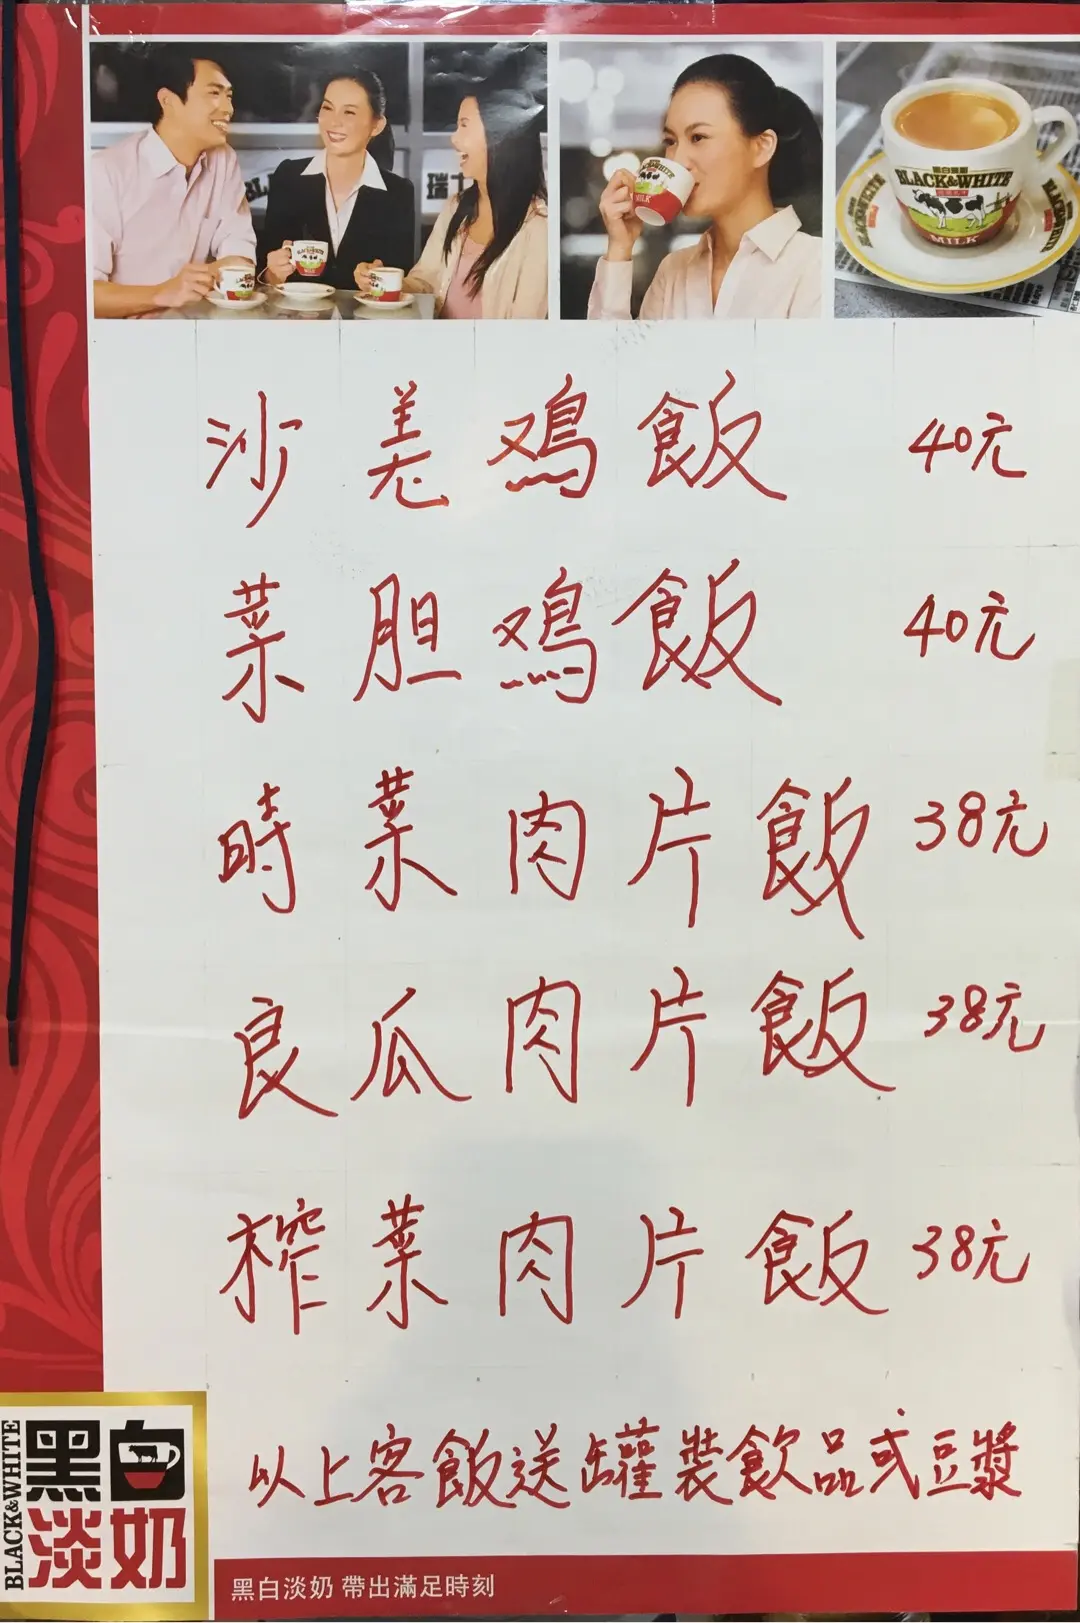 瑞士
黑白淡奶
BLACK&WHITE
MILK
沙羌鸡飯 40元
菜胆鸡飯 40元
時菜肉片飯 38元
良瓜肉片飯 38元
榨菜肉片飯 38元
以上客飯送罐裝飲品或豆漿
BLACK&WHITE
黑白
淡奶
黑白淡奶 帶出滿足時刻